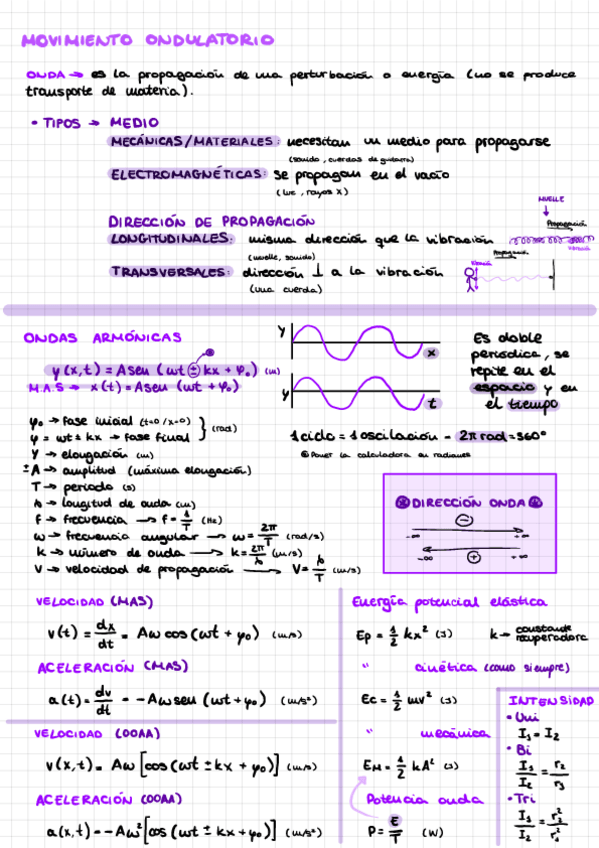 MOVIMIENTO ONDULATORIO
ONDA → es la propagación de una perturbación o energía (no se produce
transporte de materia).
• TIPOS → MEDIO
MECÁNICAS/MATERIALES: necesitan un medio para propagarse
(sonido, cuerdas de guitarra)
ELECTROMAGNÉTICAS: se propagan en el vacío
(luz, rayos X)
MUELLE
DIRECCIÓN DE PROPAGACIÓN
Propagación
LONGITUDINALES: misma dirección que la vibración
Vibración
(muelle, sonido)
Propagación
Vibración
TRANSVERSALES: dirección ⊥ a la vibración
(una cuerda)
ONDAS ARMÓNICAS
y(x,t) = A sen (ωt ± kx + φ₀) (m)
M.A.S → x(t) = A sen (ωt + φ₀)
y
x
y
t
Es doble
periódica, se
repite en el
espacio y en
el tiempo
φ₀ → fase inicial (t=0/x=0)
φ = ωt ± kx → fase final
(rad)
Y → elongación (m)
±A → amplitud (máxima elongación)
T → periodo (s)
λ → longitud de onda (m)
f → frecuencia → f = 1/T (Hz)
ω → frecuencia angular → ω = 2π/T (rad/s)
k → número de onda → k = 2π/λ (m/s)
V → velocidad de propagación → V = λ/T (m/s)
1 ciclo = 1 oscilación = 2π rad = 360°
Poner la calculadora en radianes
DIRECCIÓN ONDA
−
-∞ +∞
-∞ + +∞
VELOCIDAD (MAS)
v(t) = dx/dt = Aω cos (ωt + φ₀) (m/s)
ACELERACIÓN (MAS)
a(t) = dv/dt = -Aω sen (ωt + φ₀) (m/s²)
VELOCIDAD (OOAA)
v(x,t) = Aω [cos (ωt ± kx + φ₀)] (m/s)
ACELERACIÓN (OOAA)
a(x,t) = -Aω² [cos (ωt ± kx + φ₀)] (m/s²)
Energía potencial elástica
Ep = 1/2 kx² (J) k → constante recuperadora
" cinética (como siempre)
Ec = 1/2 mv² (J)
" mecánica
EM = 1/2 kA² (J)
Potencia onda
P = E/T (W)
INTENSIDAD
• Uni
I₁ = I₂
• Bi
I₁/I₂ = r₂/r₁
• Tri
I₁/I₂ = r₂²/r₁²